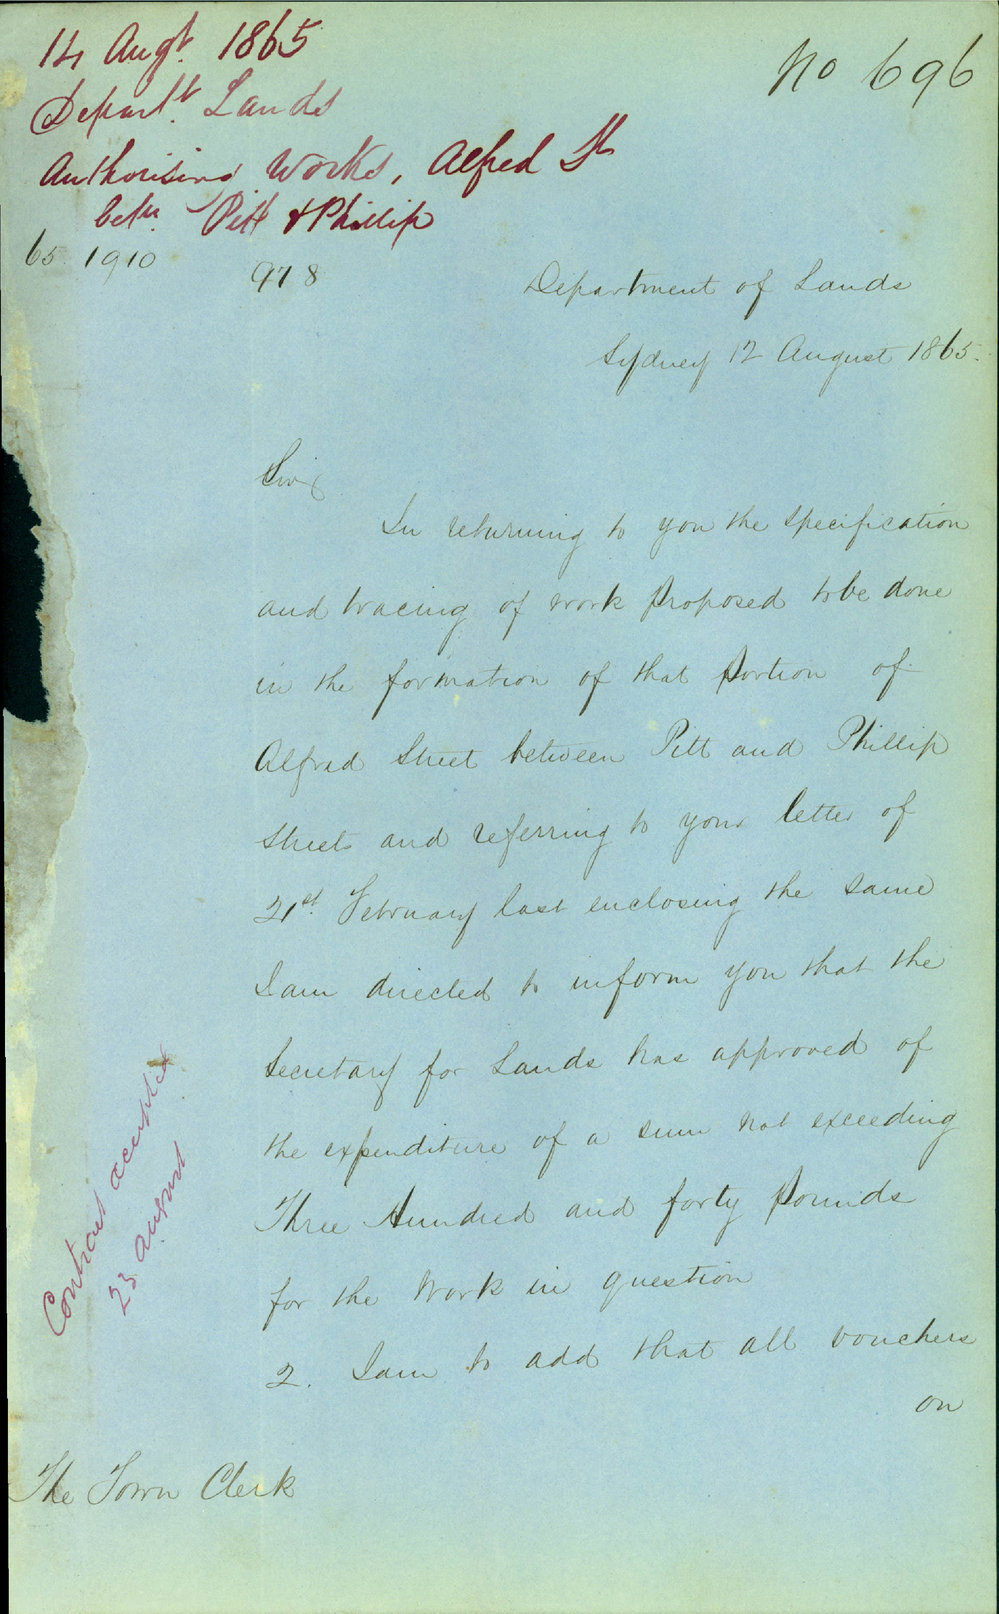 14 Augt. 1865
No 696
Departt. Lands
Authorising Works, Alfred St
betn. Pitt & Phillip
65 1910
978
Department of Lands
Sydney 12 August 1865.
Sir
In returning to you the specification
and tracing of work proposed to be done
in the formation of that portion of
Alfred Street between Pitt and Phillip
Streets and referring to your letter of
21st. February last enclosing the same
I am directed to inform you that the
Secretary for Lands has approved of
the expenditure of a sum not exceeding
Three Hundred and forty pounds
for the work in question
2. I am to add that all vouchers
on
Contract accepted
23 August
The Town Clerk